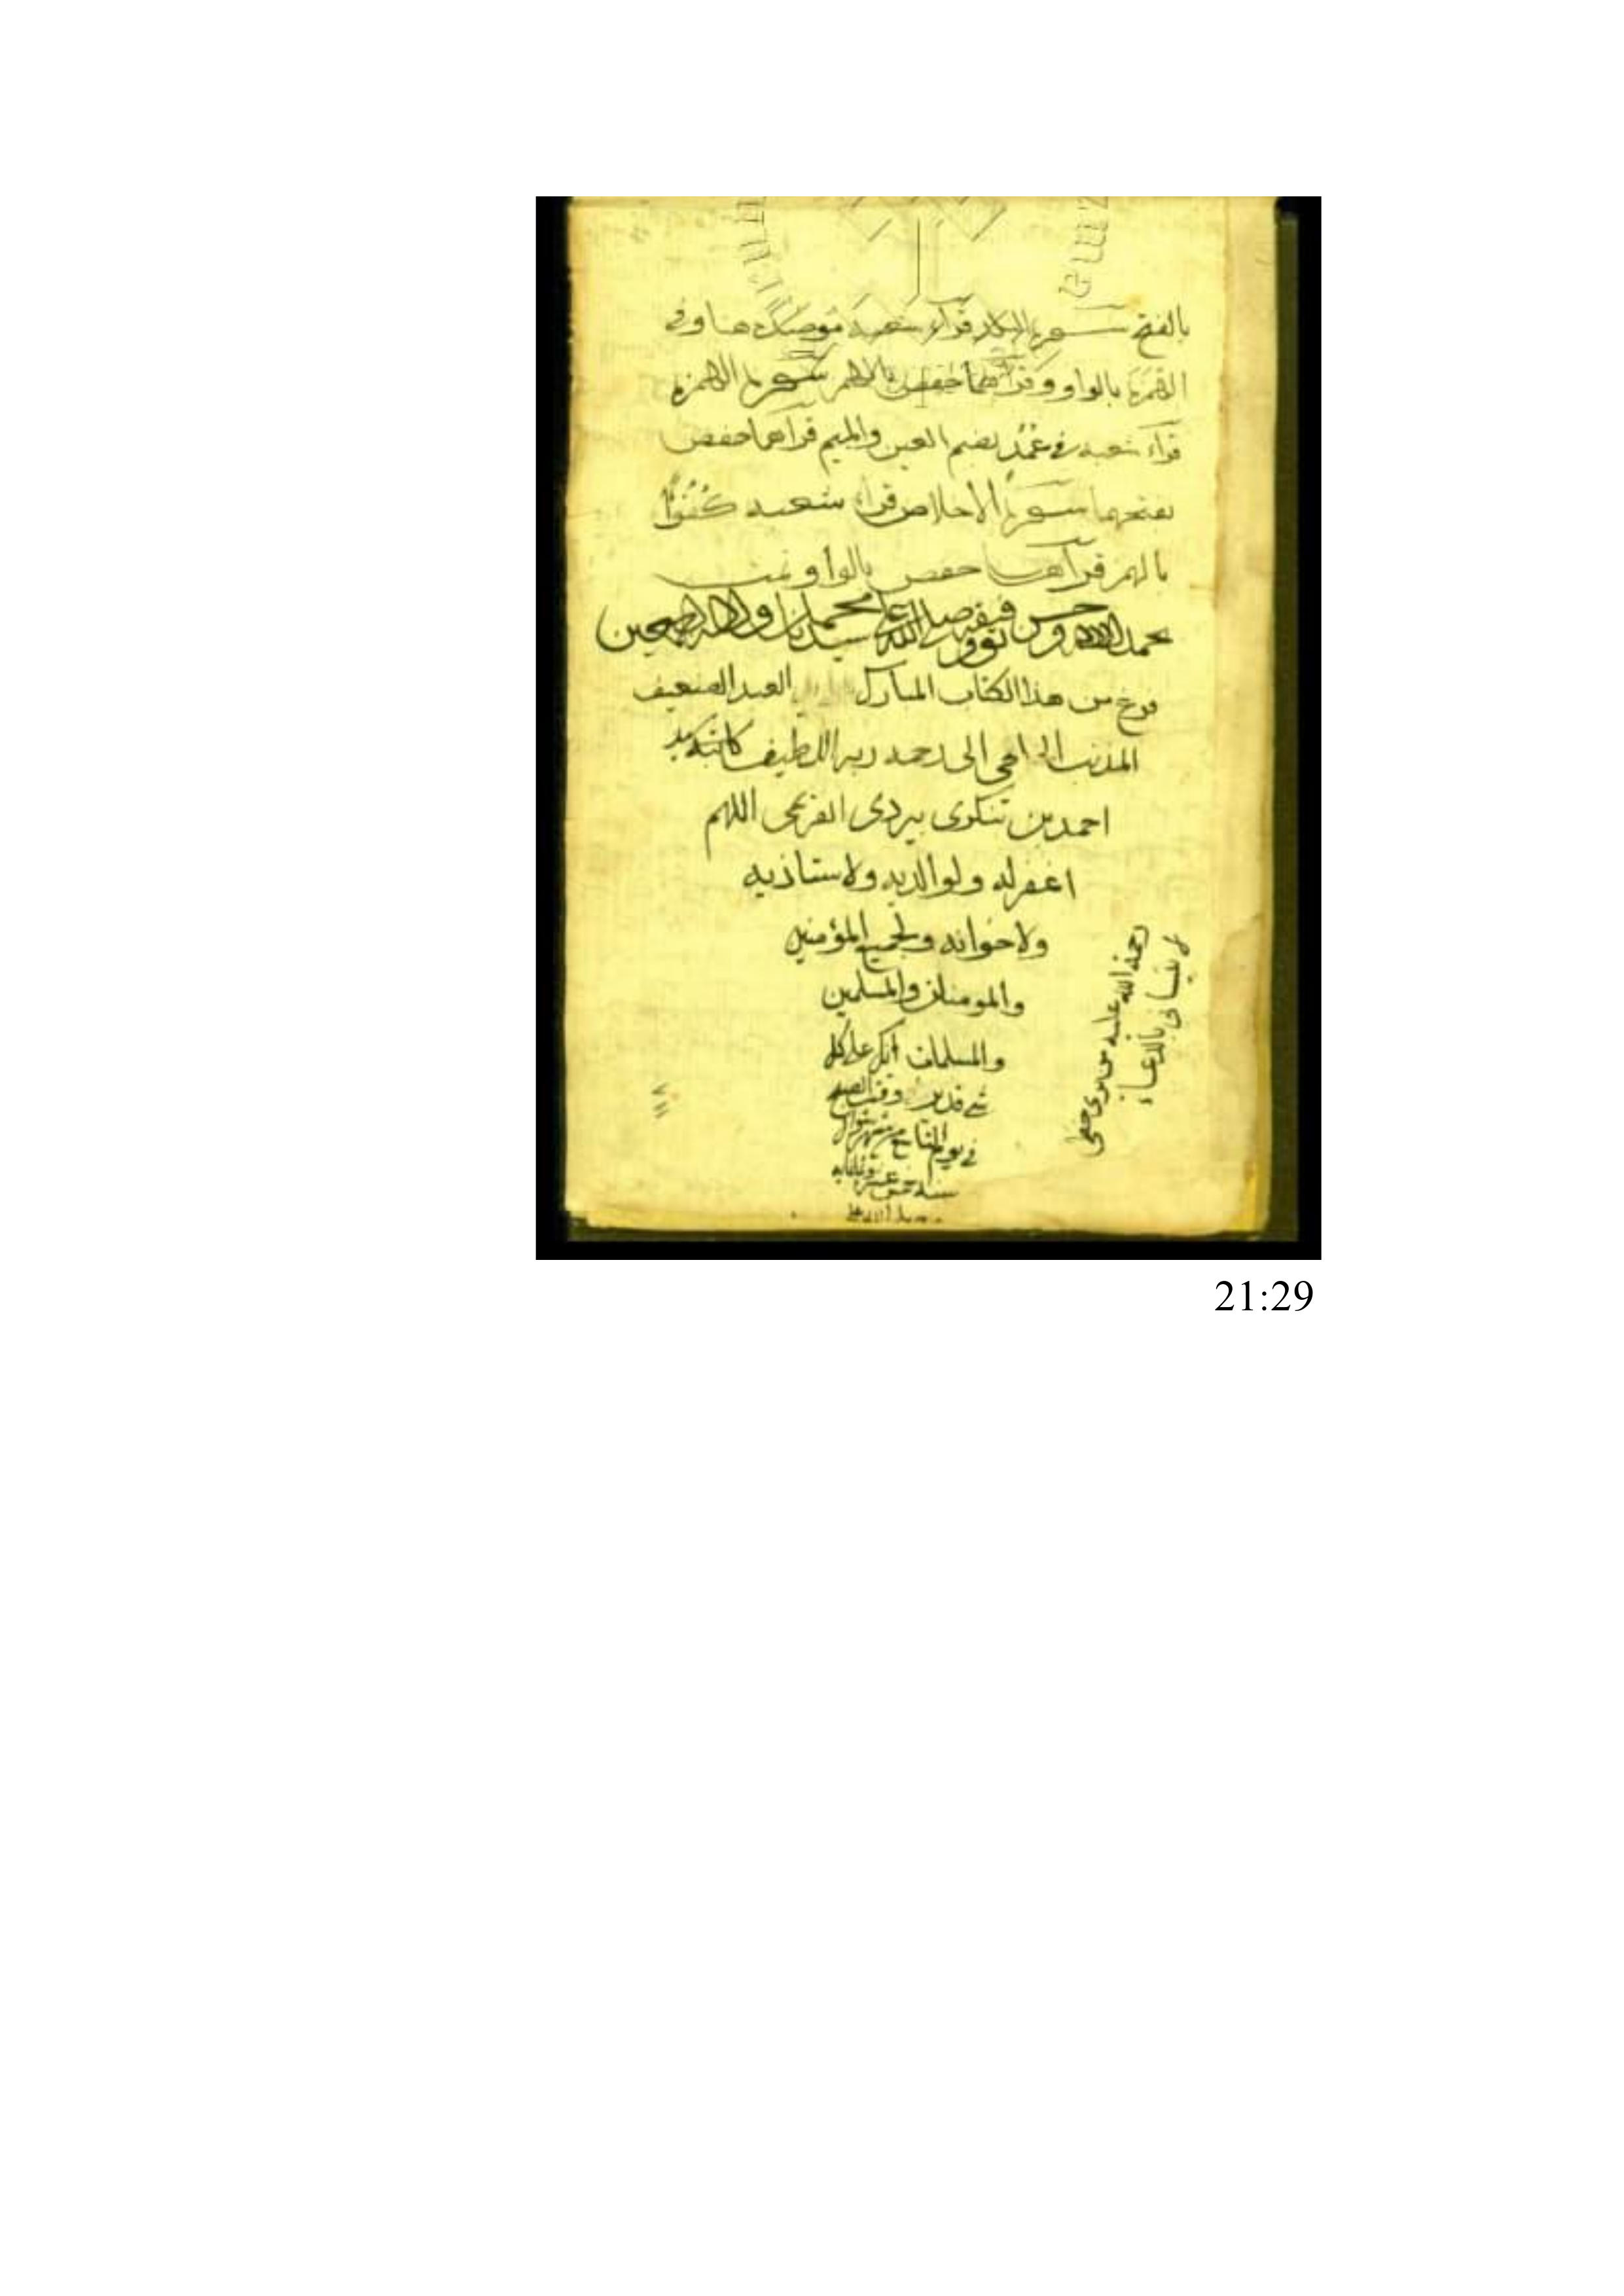 بالفتح سورة البلد قرأ شعبة موصدة هنا وفى
الهمزة بالواو وقرأهما حفص بالهمز سورة الهمزة
قرأ شعبه فى عُمُد بضم العين والميم قرأهما حفص
بفتحهما سورة الاخلاص قرأ شعبه كُفُؤًا
بالهمز قرأها حفص بالواو تمت
بحمد الله وحسن توفيقه وصلى الله على سيدنا محمد واله اجمعين
فرغ من هذا الكتاب المبارك العبد الضعيف
المذنب الراجى الى رحمه ربه اللطيف كاتبه
احمد بن تنكرى بيردى القرمى اللهم
اغفر له ولوالديه ولاستاذيه
ولاخوانه ولجميع المؤمنين
والمومنات والمسلمين
والمسلمات انك على كل
شى قدير وقت الصبح
فى يوم من شهر شوال
سنه خمس عشر وثمانمايه
رحمة الله عليه من
لا ينسانى بالدعاء
21:29